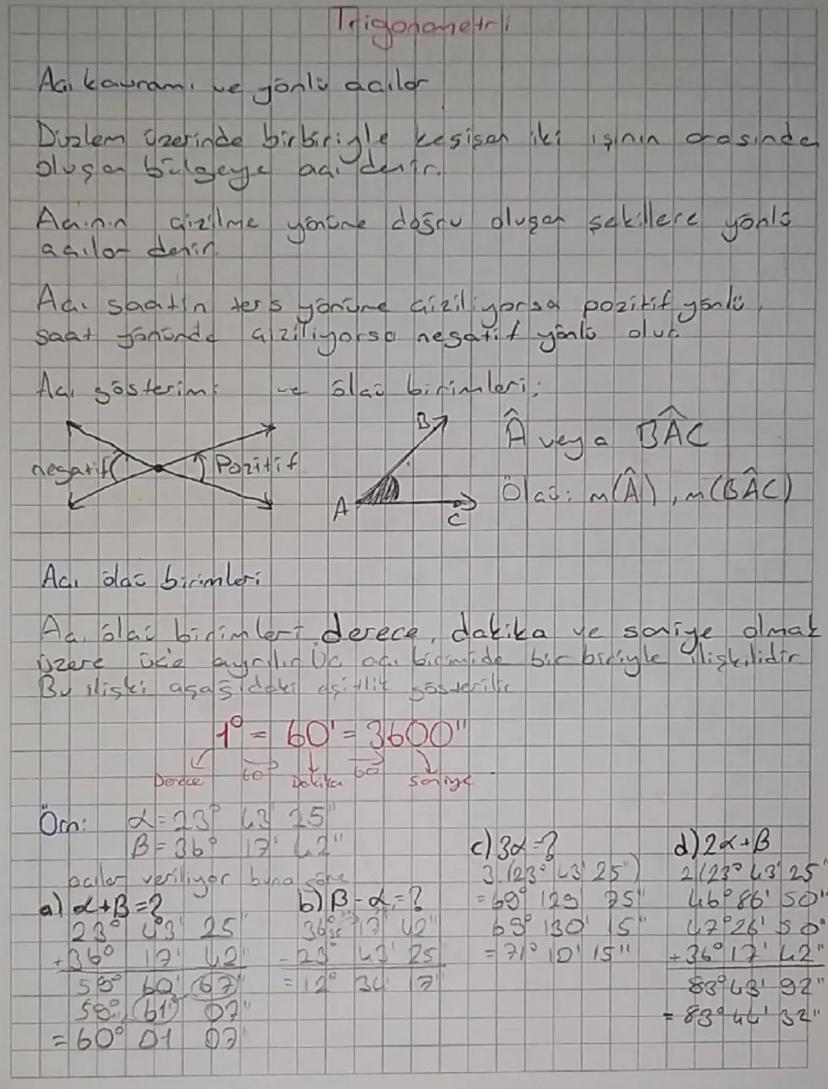 Trigonometri
Açı kavramı ve yönlü açılar
Düzlem üzerinde birbiriyle kesişen iki ışının arasında
oluşan bölgeye açı denir.
Açının çizilme yönüne doğru oluşan şekillere yönlü
açılar denir
Açı saatin ters yönüne çiziliyorsa pozitif yönlü,
saat yönünde çiziliyorsa negatif yönlü olur.
Açı gösterimi ve ölçü birimleri;
negatif Pozitif
B
A
C
Â veya BÂC
Ölçü: m(Â), m(BÂC)
Açı ölçü birimleri
Açı ölçü birimleri derece, dakika ve saniye olmak
üzere üçe ayrılır. Üç açı birimide bir biriyle ilişkilidir
Bu ilişki aşağıdaki eşitlik gösterilir
1° = 60' = 3600"
Derece 60 Dakika 60 Saniye
Örn: α = 23° 43' 25"
β = 36° 17' 42"
açılar veriliyor buna göre
a) α+β=?
23° 43' 25
+36° 17' 42
59° 60' 67
61' 07"
= 60° 01 07
b) β-α=?
36° 17' 42"
- 23° 43' 25
= 12° 34 17
c) 3α=?
3.(23° 43' 25")
= 69° 129 75"
69° 130' 15"
= 71° 10' 15"
d) 2α+β
2(23° 43' 25"
46° 86' 50"
47° 26' 50"
+36° 17' 42"
83° 43' 92"
= 83° 44' 32"